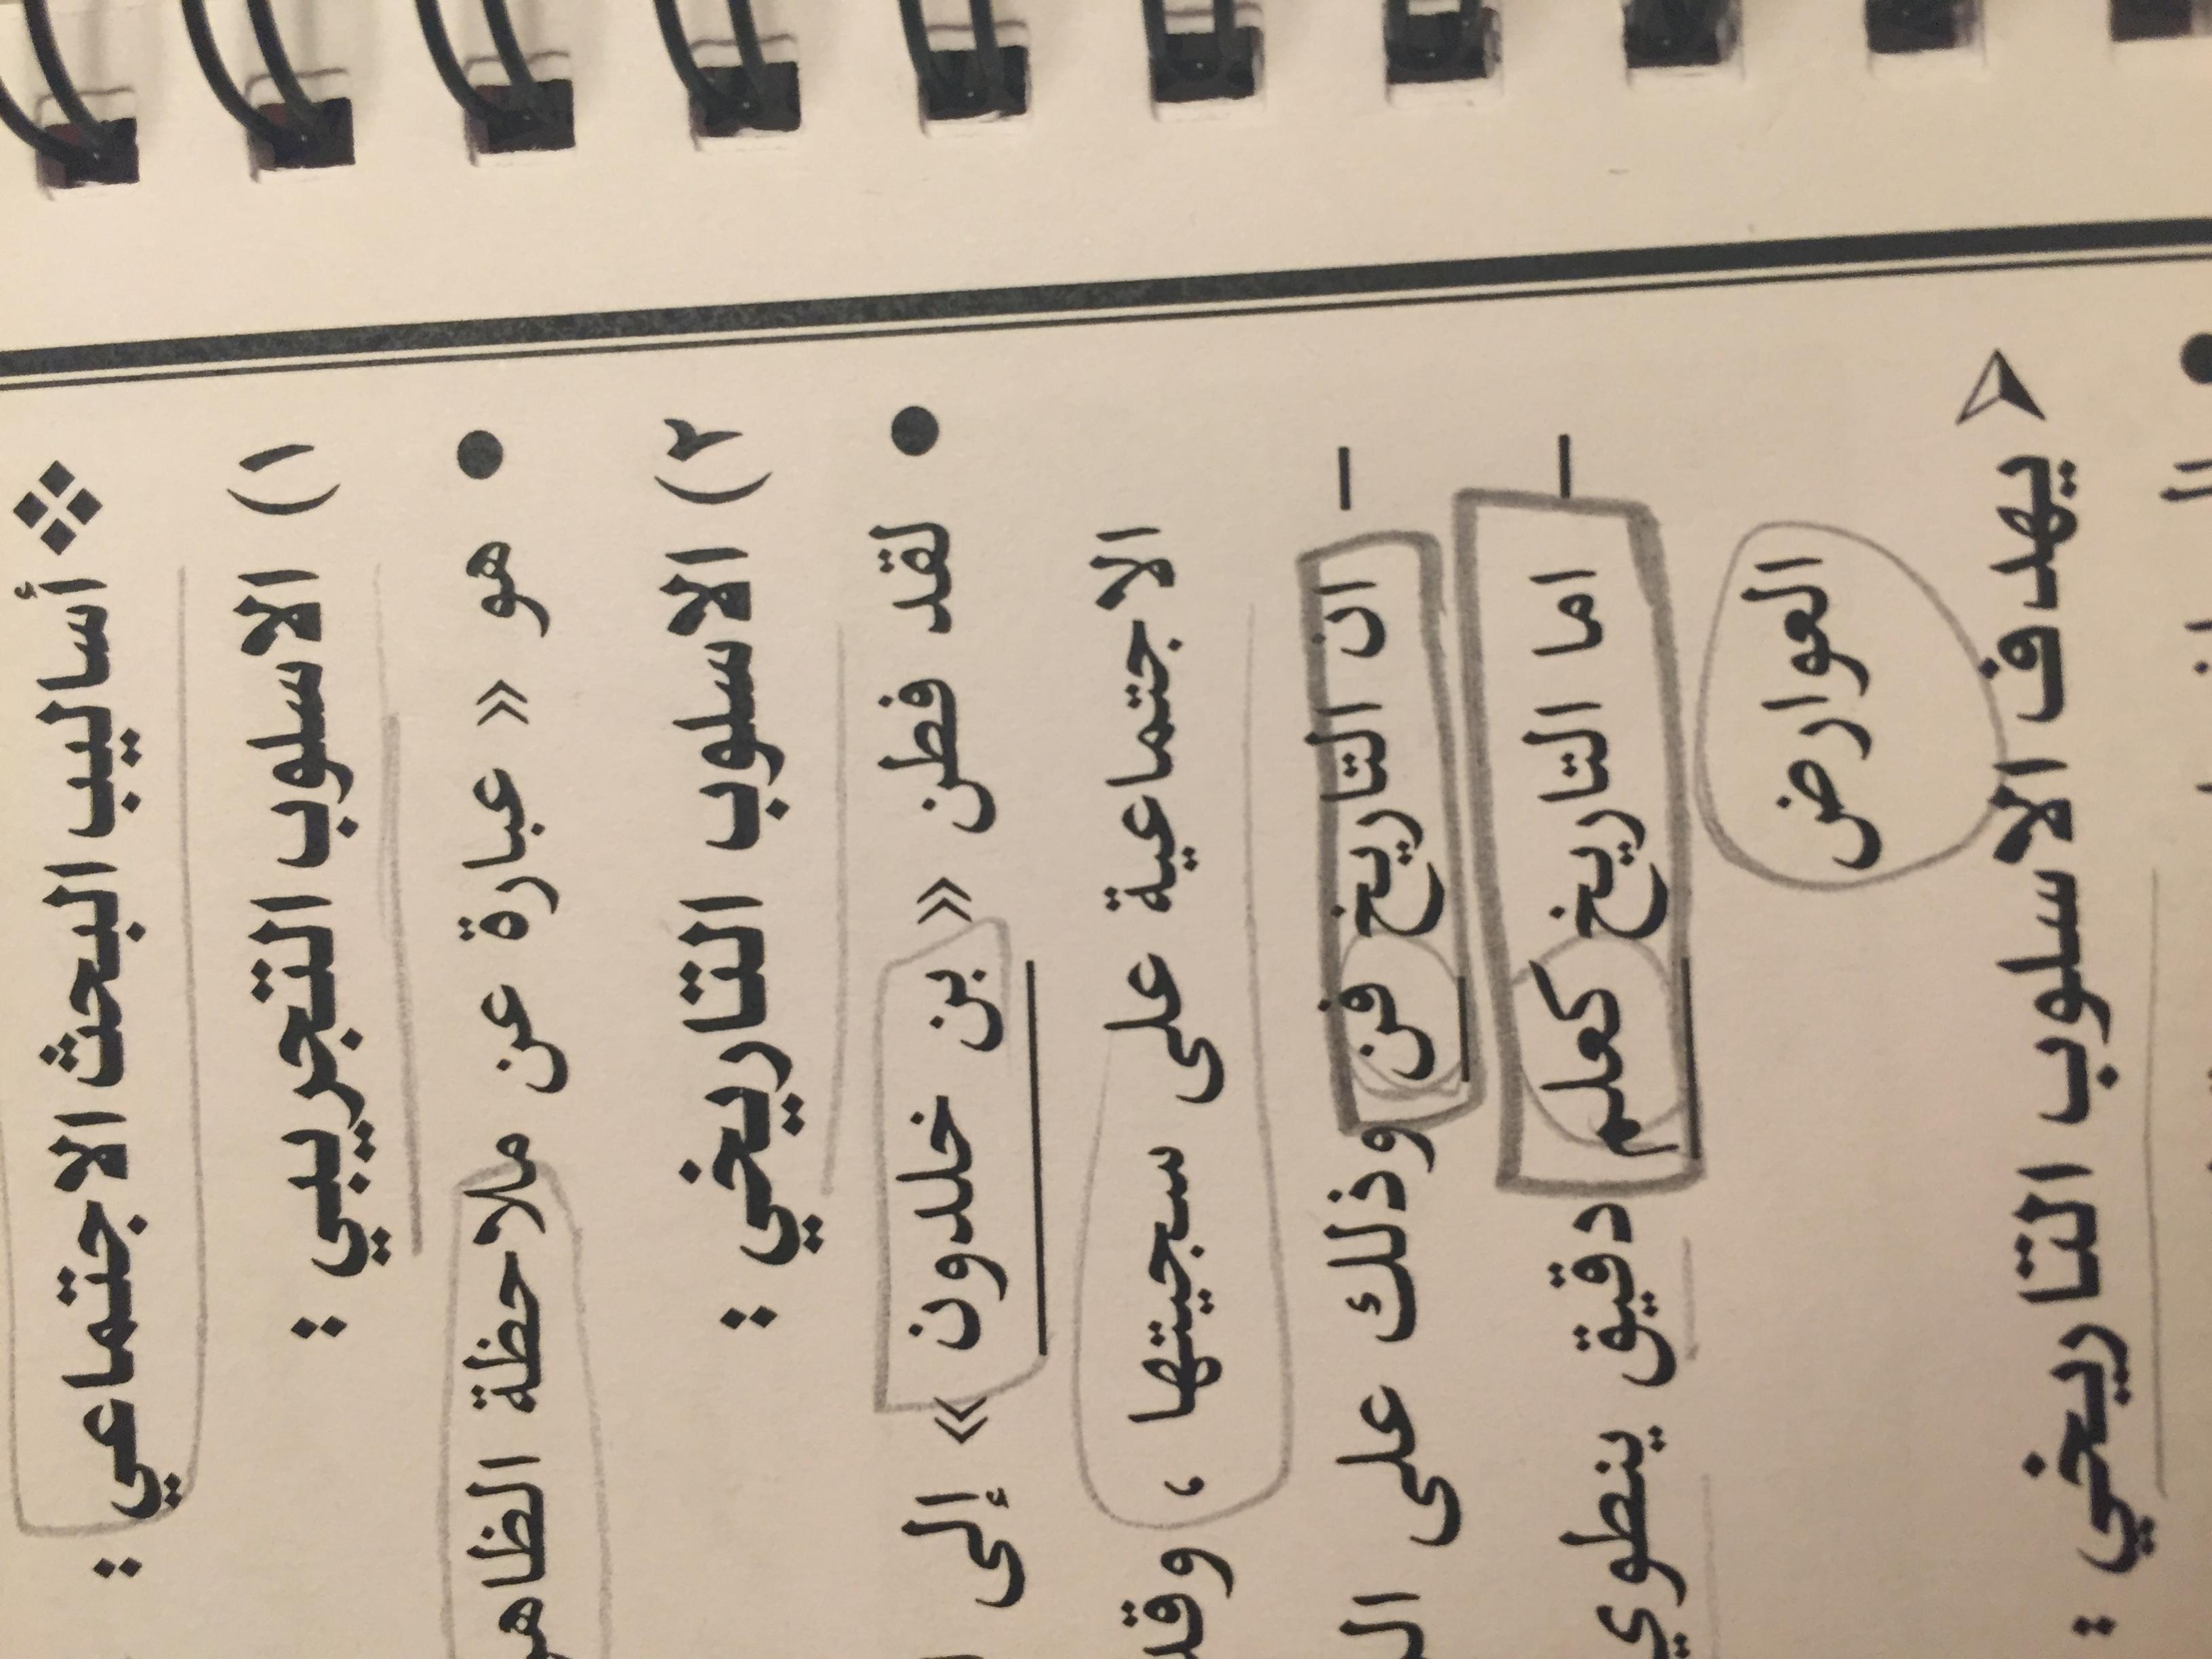 ❖ أساليب البحث الاجتماعي :
١) الاسلوب التجريبي :
• هو « عبارة عن ملاحظة
٢) الاسلوب التاريخي :
• لقد فطن « بن خلدون » إلى
الاجتماعية على سجيتها ،
– ان التاريخ فن وذلك على
– اما التاريخ كعلم دقيق ينطوي
العوارض
➢ يهدف الاسلوب التاريخي :